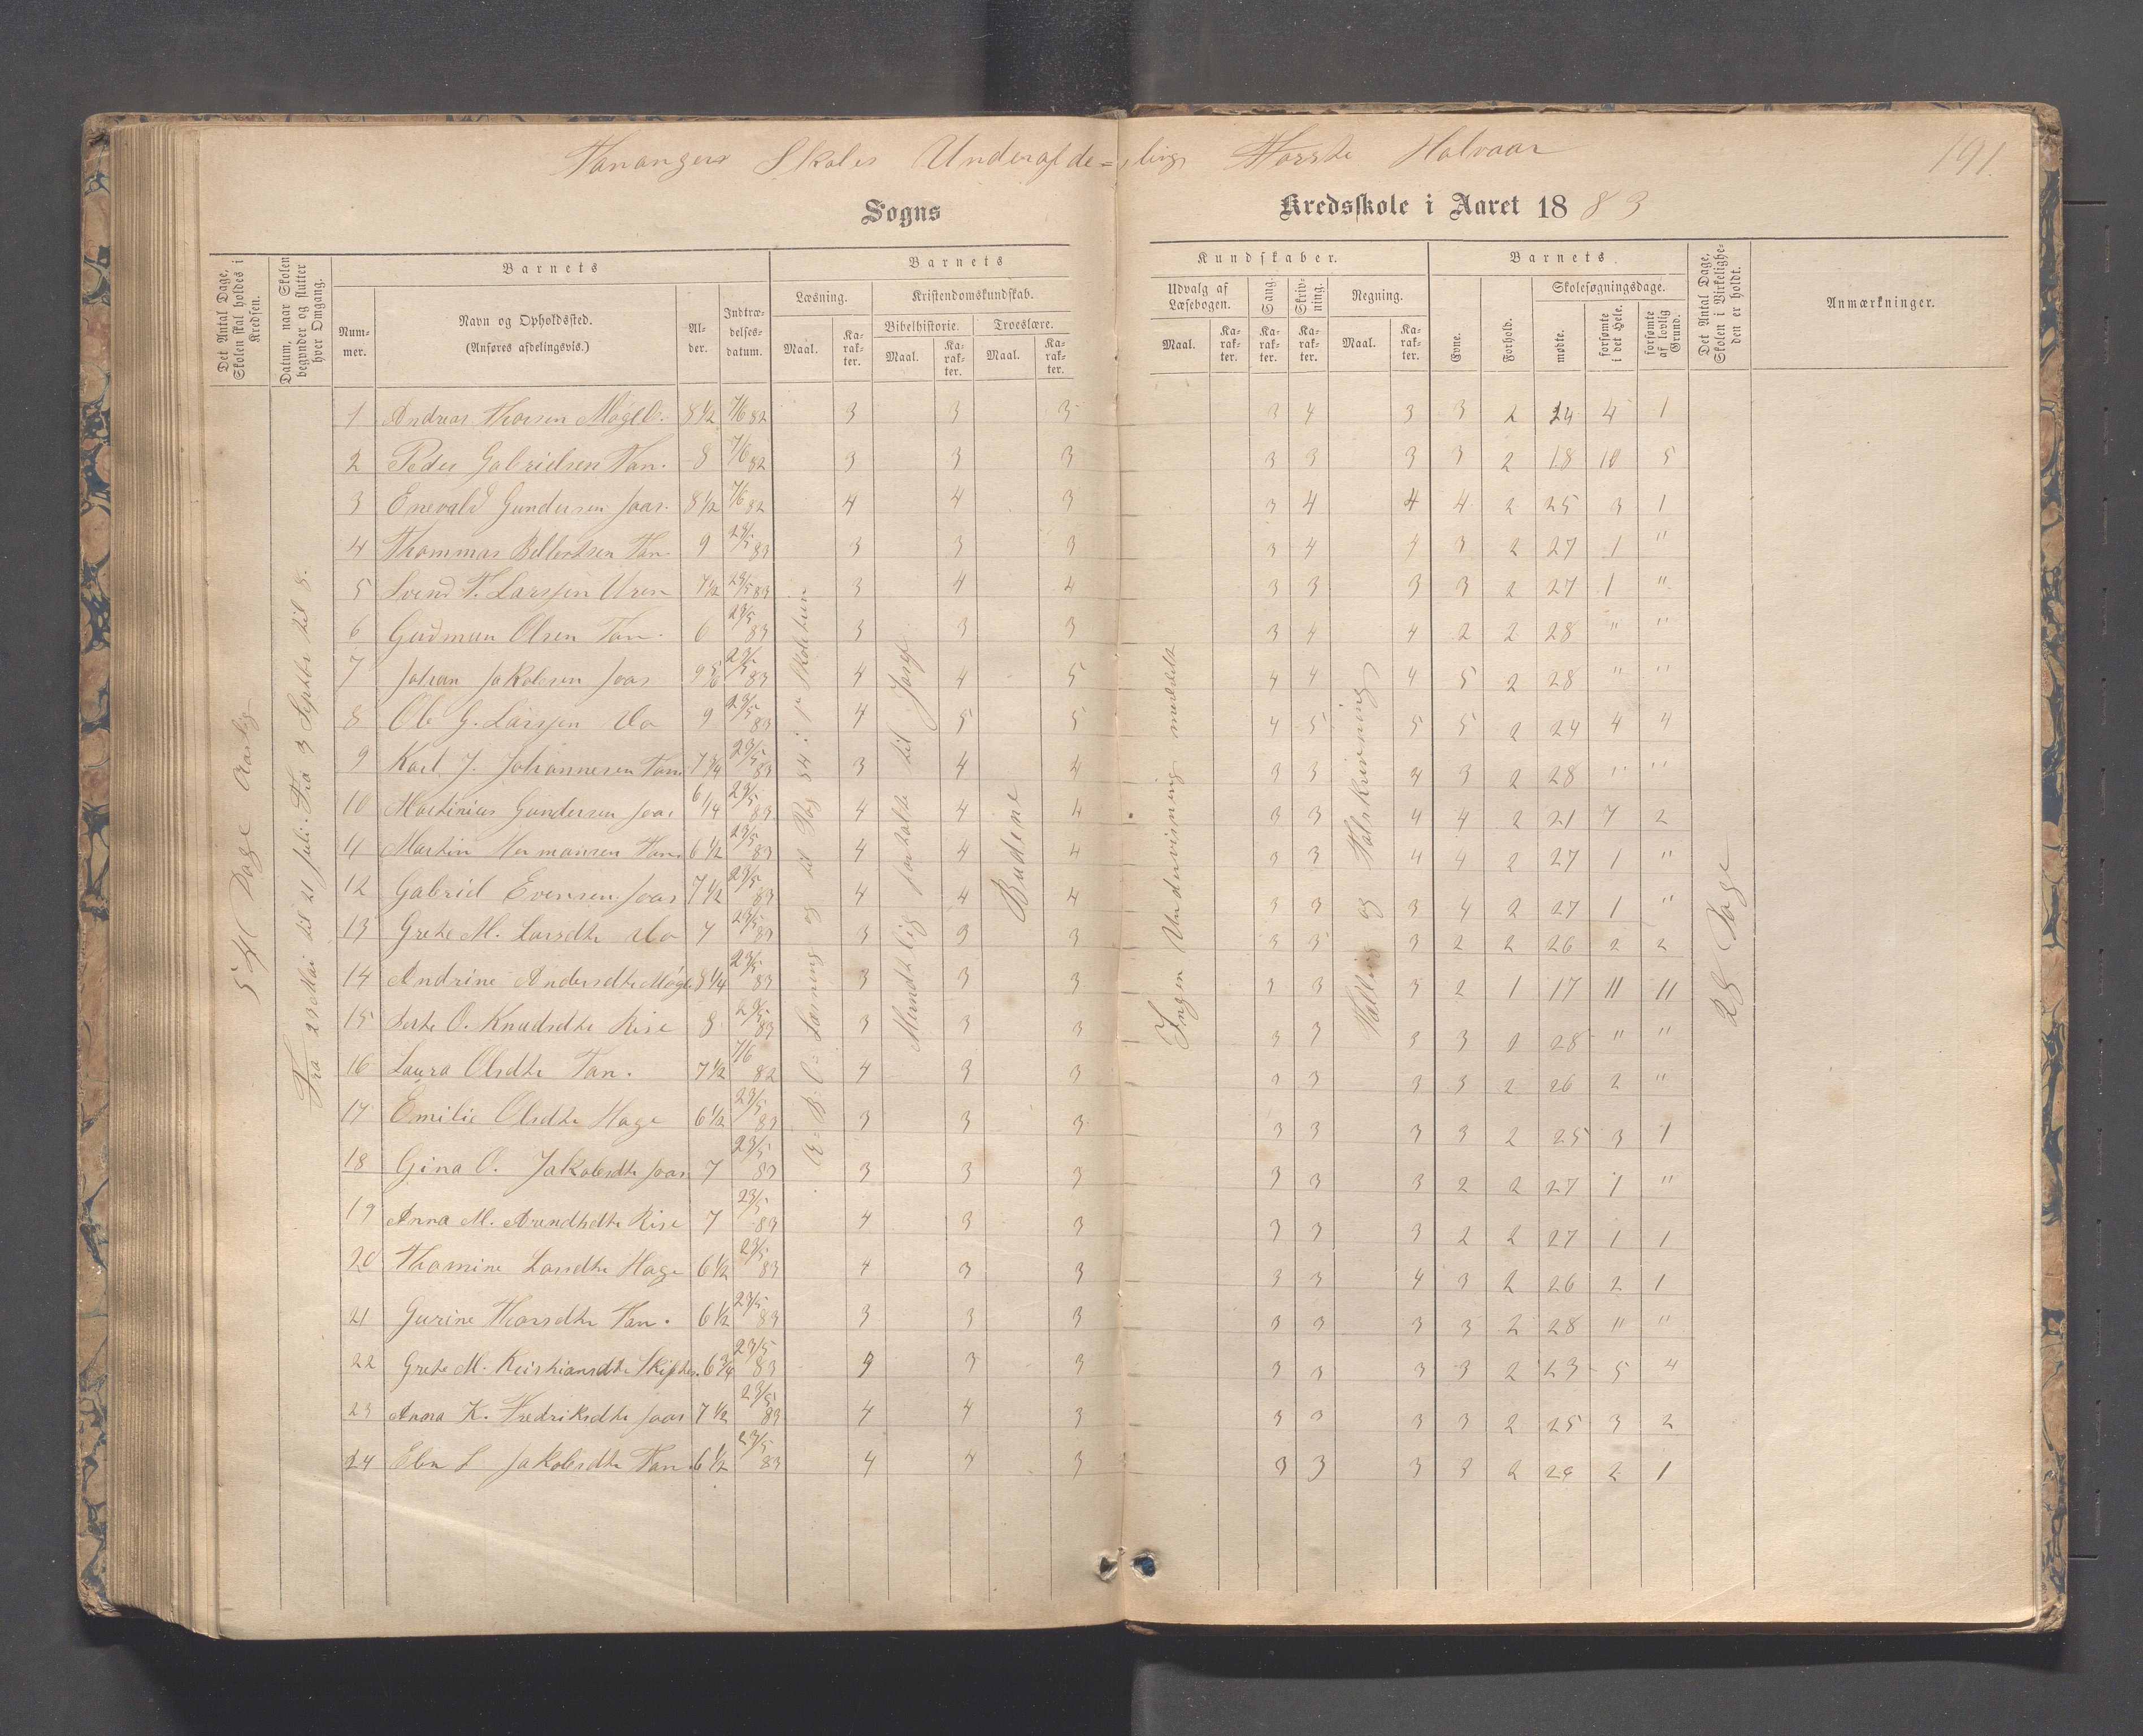 Tananger Skoles Underafde=ling Første Halvaar 191.
Sogns Kredsskole i Aaret 1883
Det Antal Dage, Skolen skal holdes i Kredsen.
Datum, naar Skolen begynder og slutter hver Omgang.
Barnets
Num-mer.
Navn og Opholdssted. (Anføres afdelingsvis.)
Al-der.
Indtræ-delses-datum.
Barnets
Læsning.
Maal.
Ka-rak-ter.
Kristendomskundskab.
Bibelhistorie.
Maal.
Ka-rak-ter.
Troeslære.
Maal.
Ka-rak-ter.
Kundskaber.
Udvalg af Læsebogen.
Maal.
Ka-rak-ter.
Sang.
Ka-rak-ter.
Skriv-ning.
Ka-rak-ter.
Regning.
Maal.
Ka-rak-ter.
Barnets
Evne.
Forhold.
Skolesøgningsdage.
mødte.
forsømte i det Hele.
forsømte af lovlig Grund.
Det Antal Dage, Skolen i Virkelighe-den er holdt.
Anmærkninger.
54 Dage Aarlig
Fra 23 Mai til 21 Juli. Fra 3 Septbr til 8.
A-B-C: Læsning og til Pag 34 i
Mundtlig fortalte til Josef
Budene
Ingen Undervisning meddelt
Tælling og Talskrivning
28 Dage
1 Andreas Thorsen 8 1/2 7/6 82 3 3 3 3 4 3 3 2 24 4 1
2 Peder Gabrielsen Tan. 8 7/6 82 3 3 3 3 3 3 3 2 18 10 5
3 Enevald Gundersen Joas. 8 1/2 7/6 82 4 4 3 3 4 4 4 2 25 3 1
4 Thommas Tan. 9 23/5 83 3 3 3 3 4 4 3 2 27 1 "
5 Svend T. Larssen 7 1/2 23/5 83 3 4 4 3 3 3 3 2 27 1 "
6 Gudmun Olsen Tan. 6 23/5 83 3 3 3 3 4 4 2 2 28 " "
7 Johan Jakobsen Joas 9 5/6 23/5 83 4 4 5 4 4 4 5 2 28 " "
8 Ole G. Larssen do 9 23/5 83 4 5 5 4 5 5 5 2 24 4 4
9 Karl J. Johannesen Tan. 7 3/4 23/5 83 3 4 4 3 3 4 3 2 28 " "
10 Martinius Gundersen Joas 6 1/4 23/5 83 4 4 4 3 3 4 4 2 21 7 2
11 Martin Hermansen Tan. 6 1/2 23/5 83 4 4 4 3 3 4 4 2 27 1 "
12 Gabriel Evensen Joas 7 1/2 23/5 83 4 4 4 3 3 3 4 2 27 1 "
13 Grete M. Larsdtr do 7 23/5 83 3 3 3 3 3 3 2 2 26 2 2
14 Andrine Andersdtr 8 1/4 23/5 83 3 3 3 3 3 3 2 1 17 11 11
15 O. Knudsdtr Rise 8 23/5 83 3 3 3 3 3 3 3 2 28 " "
16 Laura Olsdtr Tan. 7 1/2 7/6 82 4 3 3 3 3 3 3 2 26 2 "
17 Emilie Olsdtr Hage 6 1/2 23/5 83 3 3 3 3 3 3 3 2 25 3 1
18 Gina O. Jakobsdtr Joas 7 23/5 83 3 3 3 3 3 3 2 2 27 1 "
19 Anna M. Arendtsdtr Rise 7 23/5 83 4 3 3 3 3 3 2 2 27 1 1
20 Thomine Larsdtr Hage 6 1/2 23/5 83 4 3 3 3 3 4 3 2 26 2 1
21 Gurine Thorsdtr Tan. 6 1/2 23/5 83 3 3 3 3 3 3 3 2 28 " "
22 Grete M. Kristiansdtr 6 3/4 23/5 83 4 3 3 3 3 3 3 2 23 5 4
23 Anna K. Fredriksdtr Joas 7 1/2 23/5 83 4 4 3 3 3 3 3 2 25 3 2
24 Elen S Jakobsdtr Tan. 6 1/2 23/5 83 4 4 3 3 3 3 3 2 26 2 1